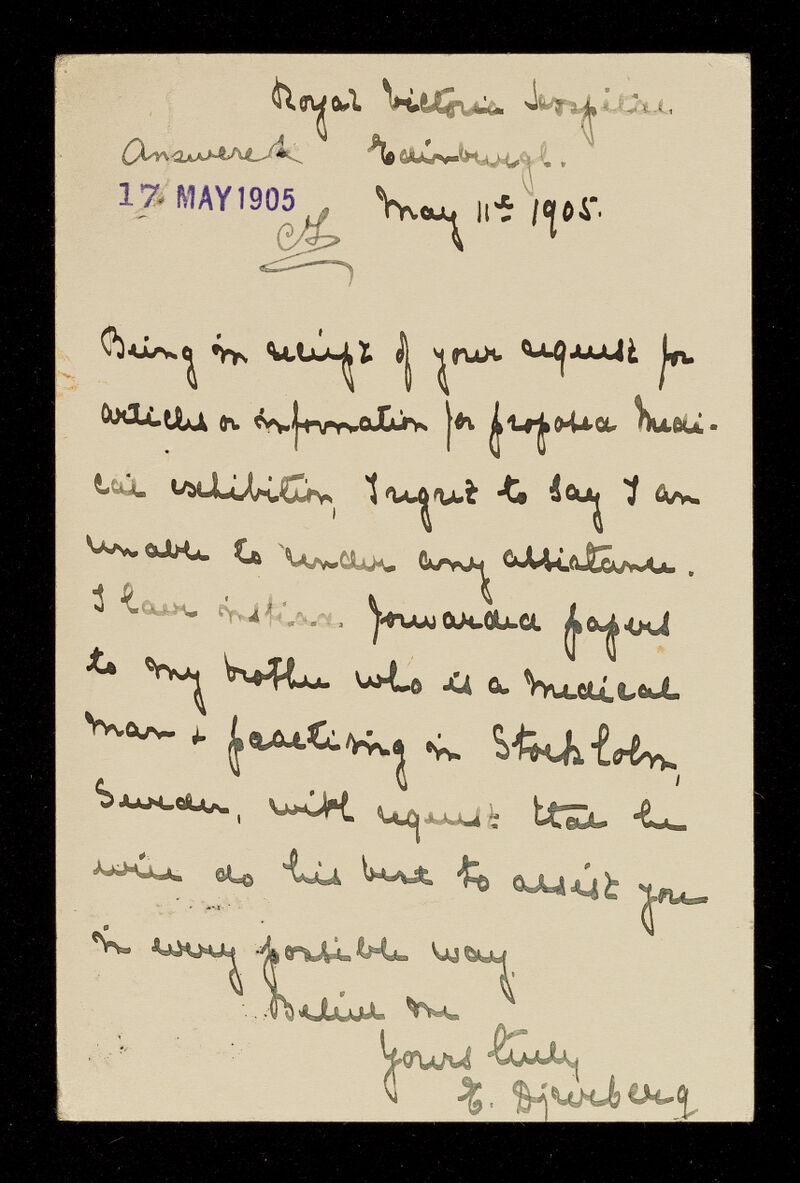 Royal Victoria Hospital
Answered Edinburgh.
17 MAY 1905
May 11th 1905.
Being in receipt of your request for
articles or information for proposed Medi-
cal exhibition, I regret to say I am
unable to render any assistance.
I have instead forwarded papers
to my brother who is a medical
man + practising in Stockholm,
Sweden, with request that he
will do his best to assist you
in every possible way.
Believe me
Yours truly
E. Djurberg